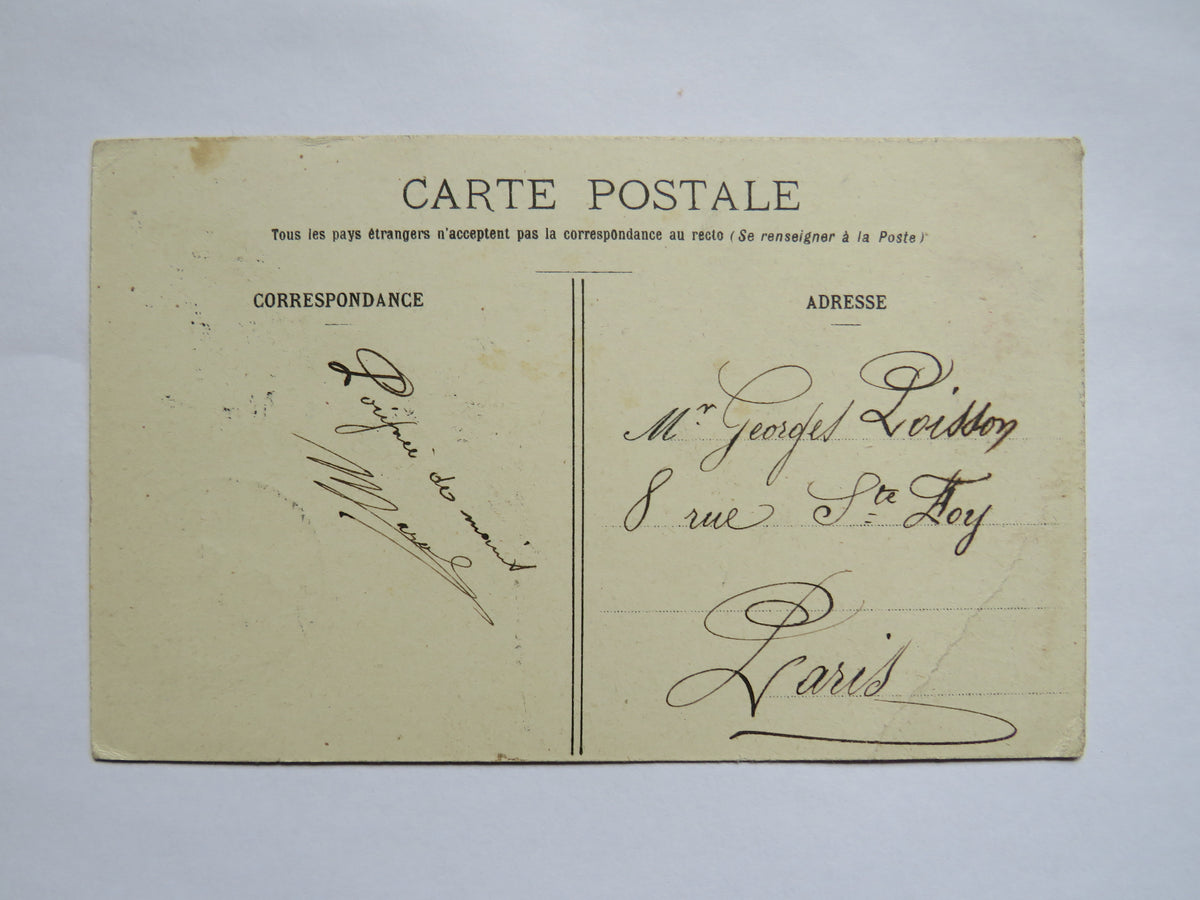 CARTE POSTALE
Tous les pays étrangers n'acceptent pas la correspondance au recto (Se renseigner à la Poste)
CORRESPONDANCE
Poignée de mains
ADRESSE
Mr. Georges Poisson
8 rue Ste Foy
Paris